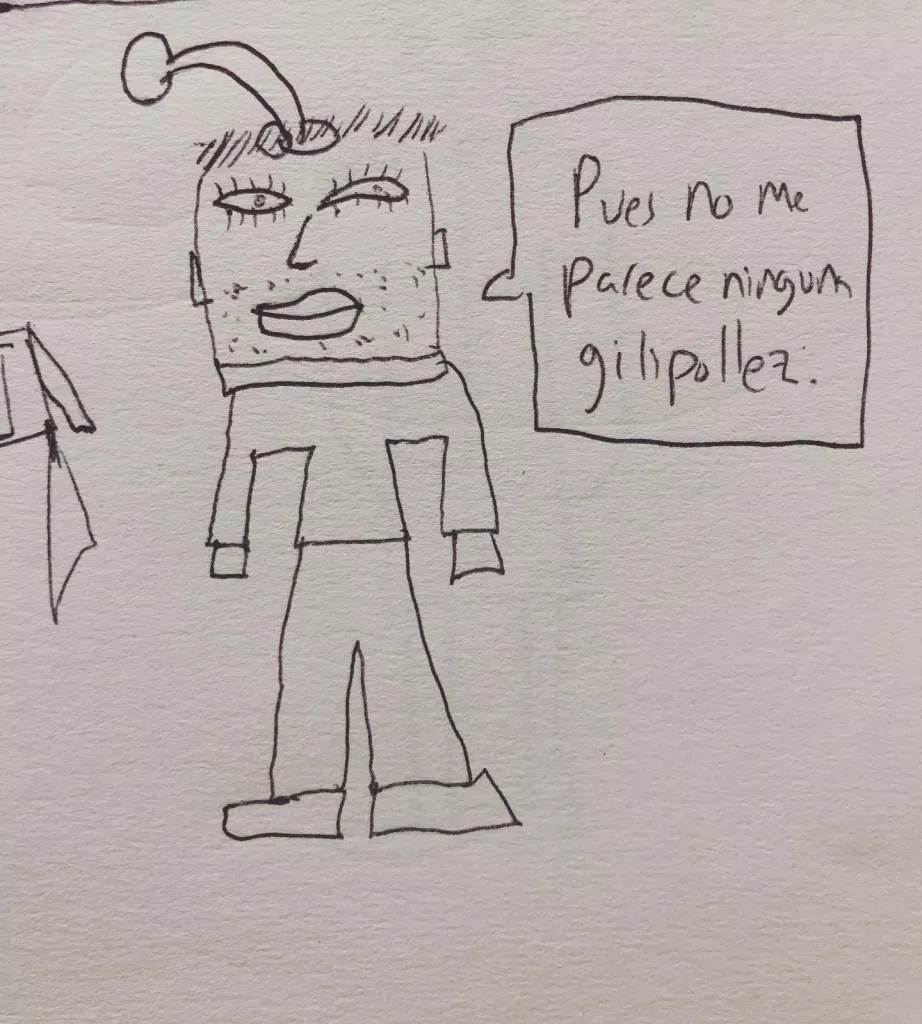 Pues no me
parece ninguna
gilipollez.